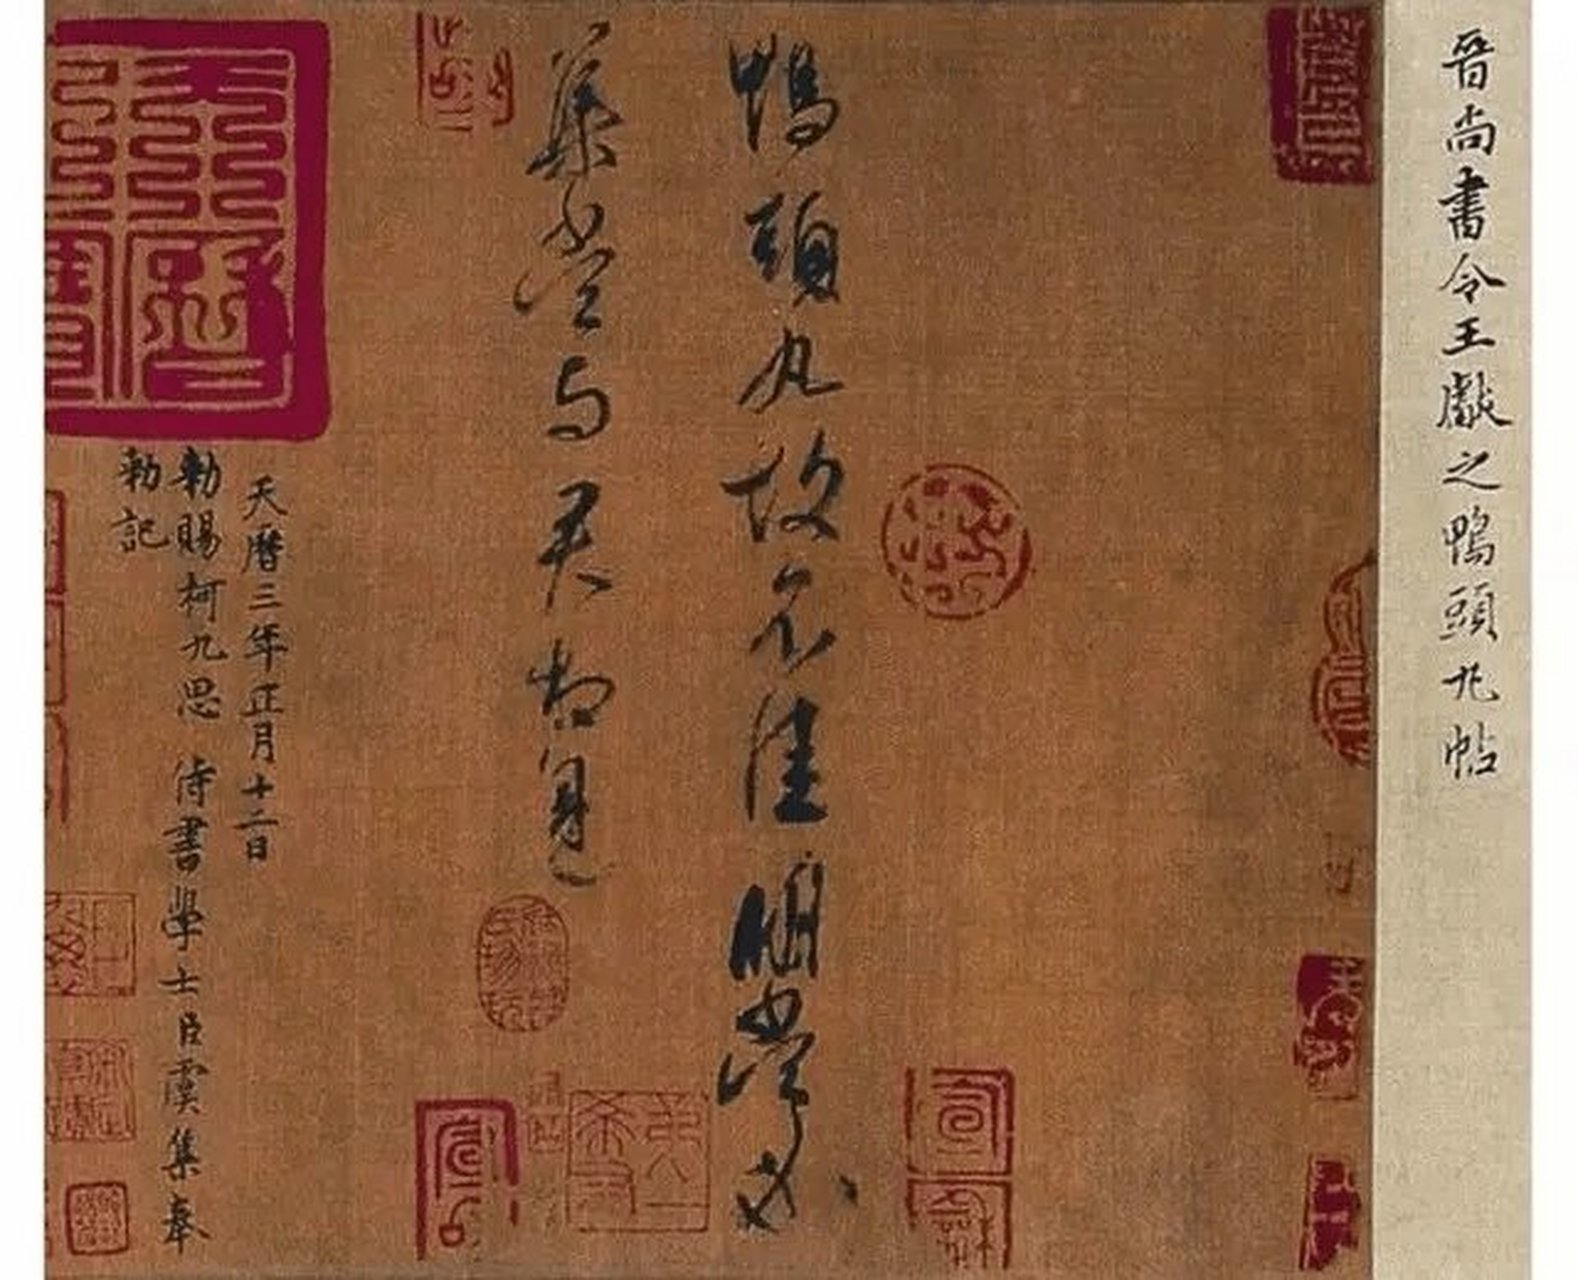 晉尚書令王獻之鴨頭丸帖
鴨頭丸故不佳明當必
集當與君相見
天曆三年正月十二日
勑賜柯九思侍書學士臣虞集奉
勑記
天曆之寶
宣和